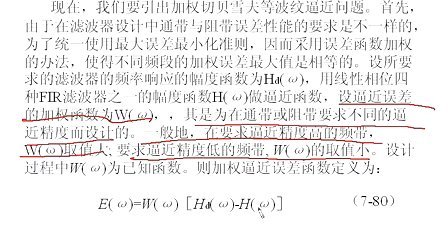 现在，我们要引出加权切贝雪夫等波纹逼近问题。首先，
由于在滤波器设计中通带与阻带误差性能的要求是不一样的，
为了统一使用最大误差最小化准则，因而采用误差函数加权
的办法，使得不同频段的加权误差最大值是相等的。设所要
求的滤波器的频率响应的幅度函数为Hd(ω)，用线性相位四
种FIR滤波器之一的幅度函数H(ω)做逼近函数，设逼近误差
的加权函数为W(ω)，，其是为在通带或阻带要求不同的逼
近精度而设计的。一般地，在要求逼近精度高的频带，
W(ω)取值大；要求逼近精度低的频带，W(ω)的取值小。设计
过程中W(ω)为已知函数。则加权逼近误差函数定义为：
E(ω)=W(ω)［Hd(ω)-H(ω)］ (7-80)